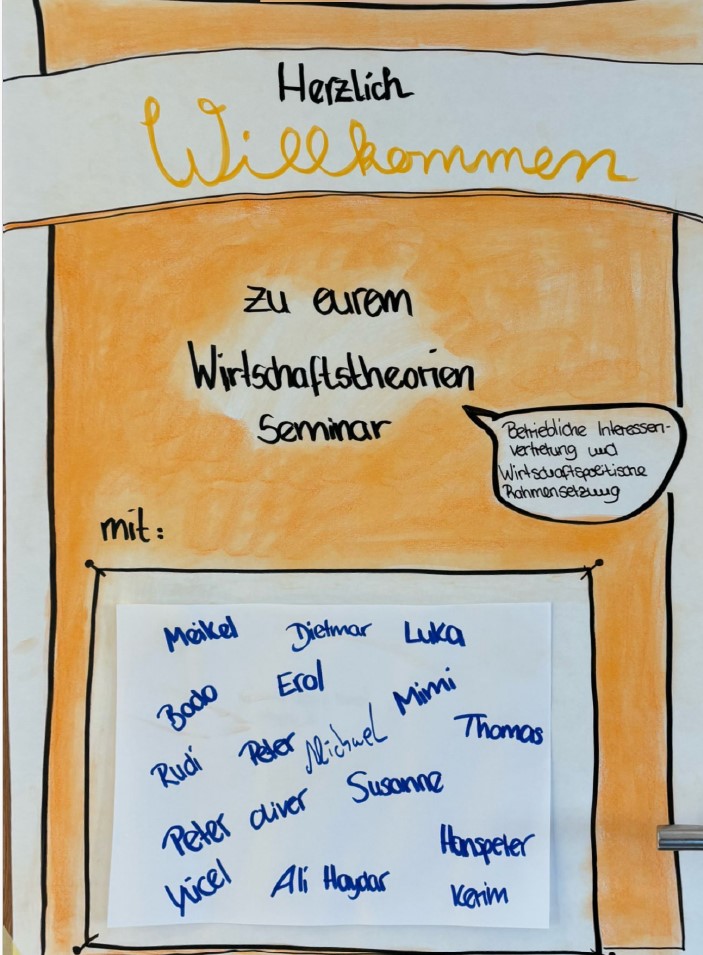 Herzlich
Willkommen
zu eurem
Wirtschaftstheorien
Seminar
Betriebliche Interessen-
vertretung und
Wirtschaftspolitische
Rahmensetzung
mit:
Meikel Dietmar Luka
Bodo Erol Mimi
Rudi Peter Michael Thomas
Peter Oliver Susanne
Hanspeter
Yücel Ali Haydar Kerim